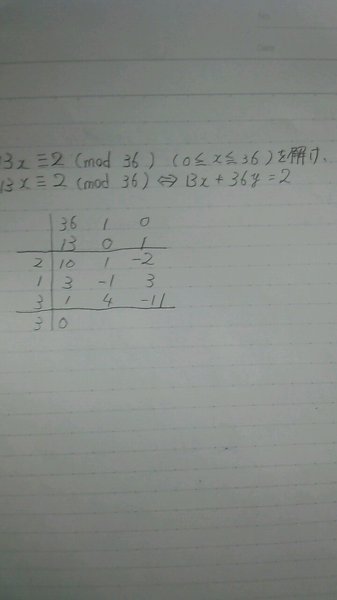 13x ≡ 2 (mod 36) (0 ≦ x ≦ 36) を解け、
13x ≡ 2 (mod 36) ⇔ 13x + 36y = 2
36 1 0
13 0 1
2 10 1 -2
1 3 -1 3
3 1 4 -11
3 0